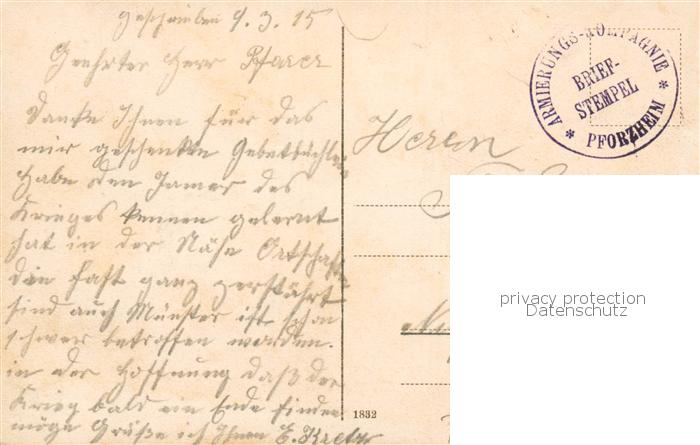 geschrieben 9.3.15
Geehrter Herr Pfarer
Danke Ihnen für das
mir geschenkte Gebetbüchlein
Habe den Jamer des
Krieges kennen gelernt
hat in der Näse Ortschaften
die fast ganz zerstährt
sind auch Münster ist schon
schwer betroffen worden.
in der Hoffnung daß der
Krieg bald ein Ende finden
möge Grüße ich Ihnen E. Kretz
ARMIERUNGS-KOMPAGNIE
BRIEF-
STEMPEL
* PFORZHEIM *
Herrn
1832
privacy protection
Datenschutz